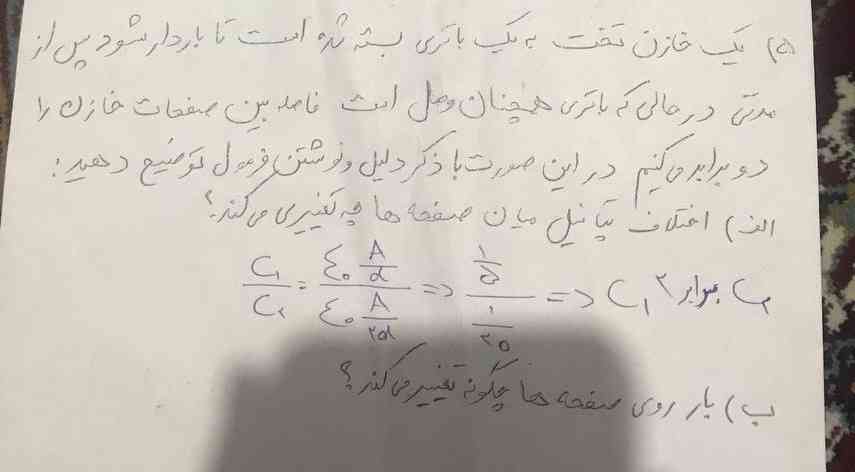 ۵) یک خازن تخت به یک باتری بسته شده است تا باردار شود پس از
مدتی در حالی که باتری همچنان وصل است فاصله بین صفحات خازن را
دو برابر می‌کنیم در این صورت با ذکر دلیل و نوشتن فرمول توضیح دهید:
الف) اختلاف پتانسیل میان صفحه ها چه تغییری می کند؟
C₁/C₂ = (ε₀ A/d)/(ε₀ A/۲d) => (۱/d)/(۱/۲d) => C₁ ۲ برابر C₂
ب) بار روی صفحه ها چگونه تغییر می کند؟